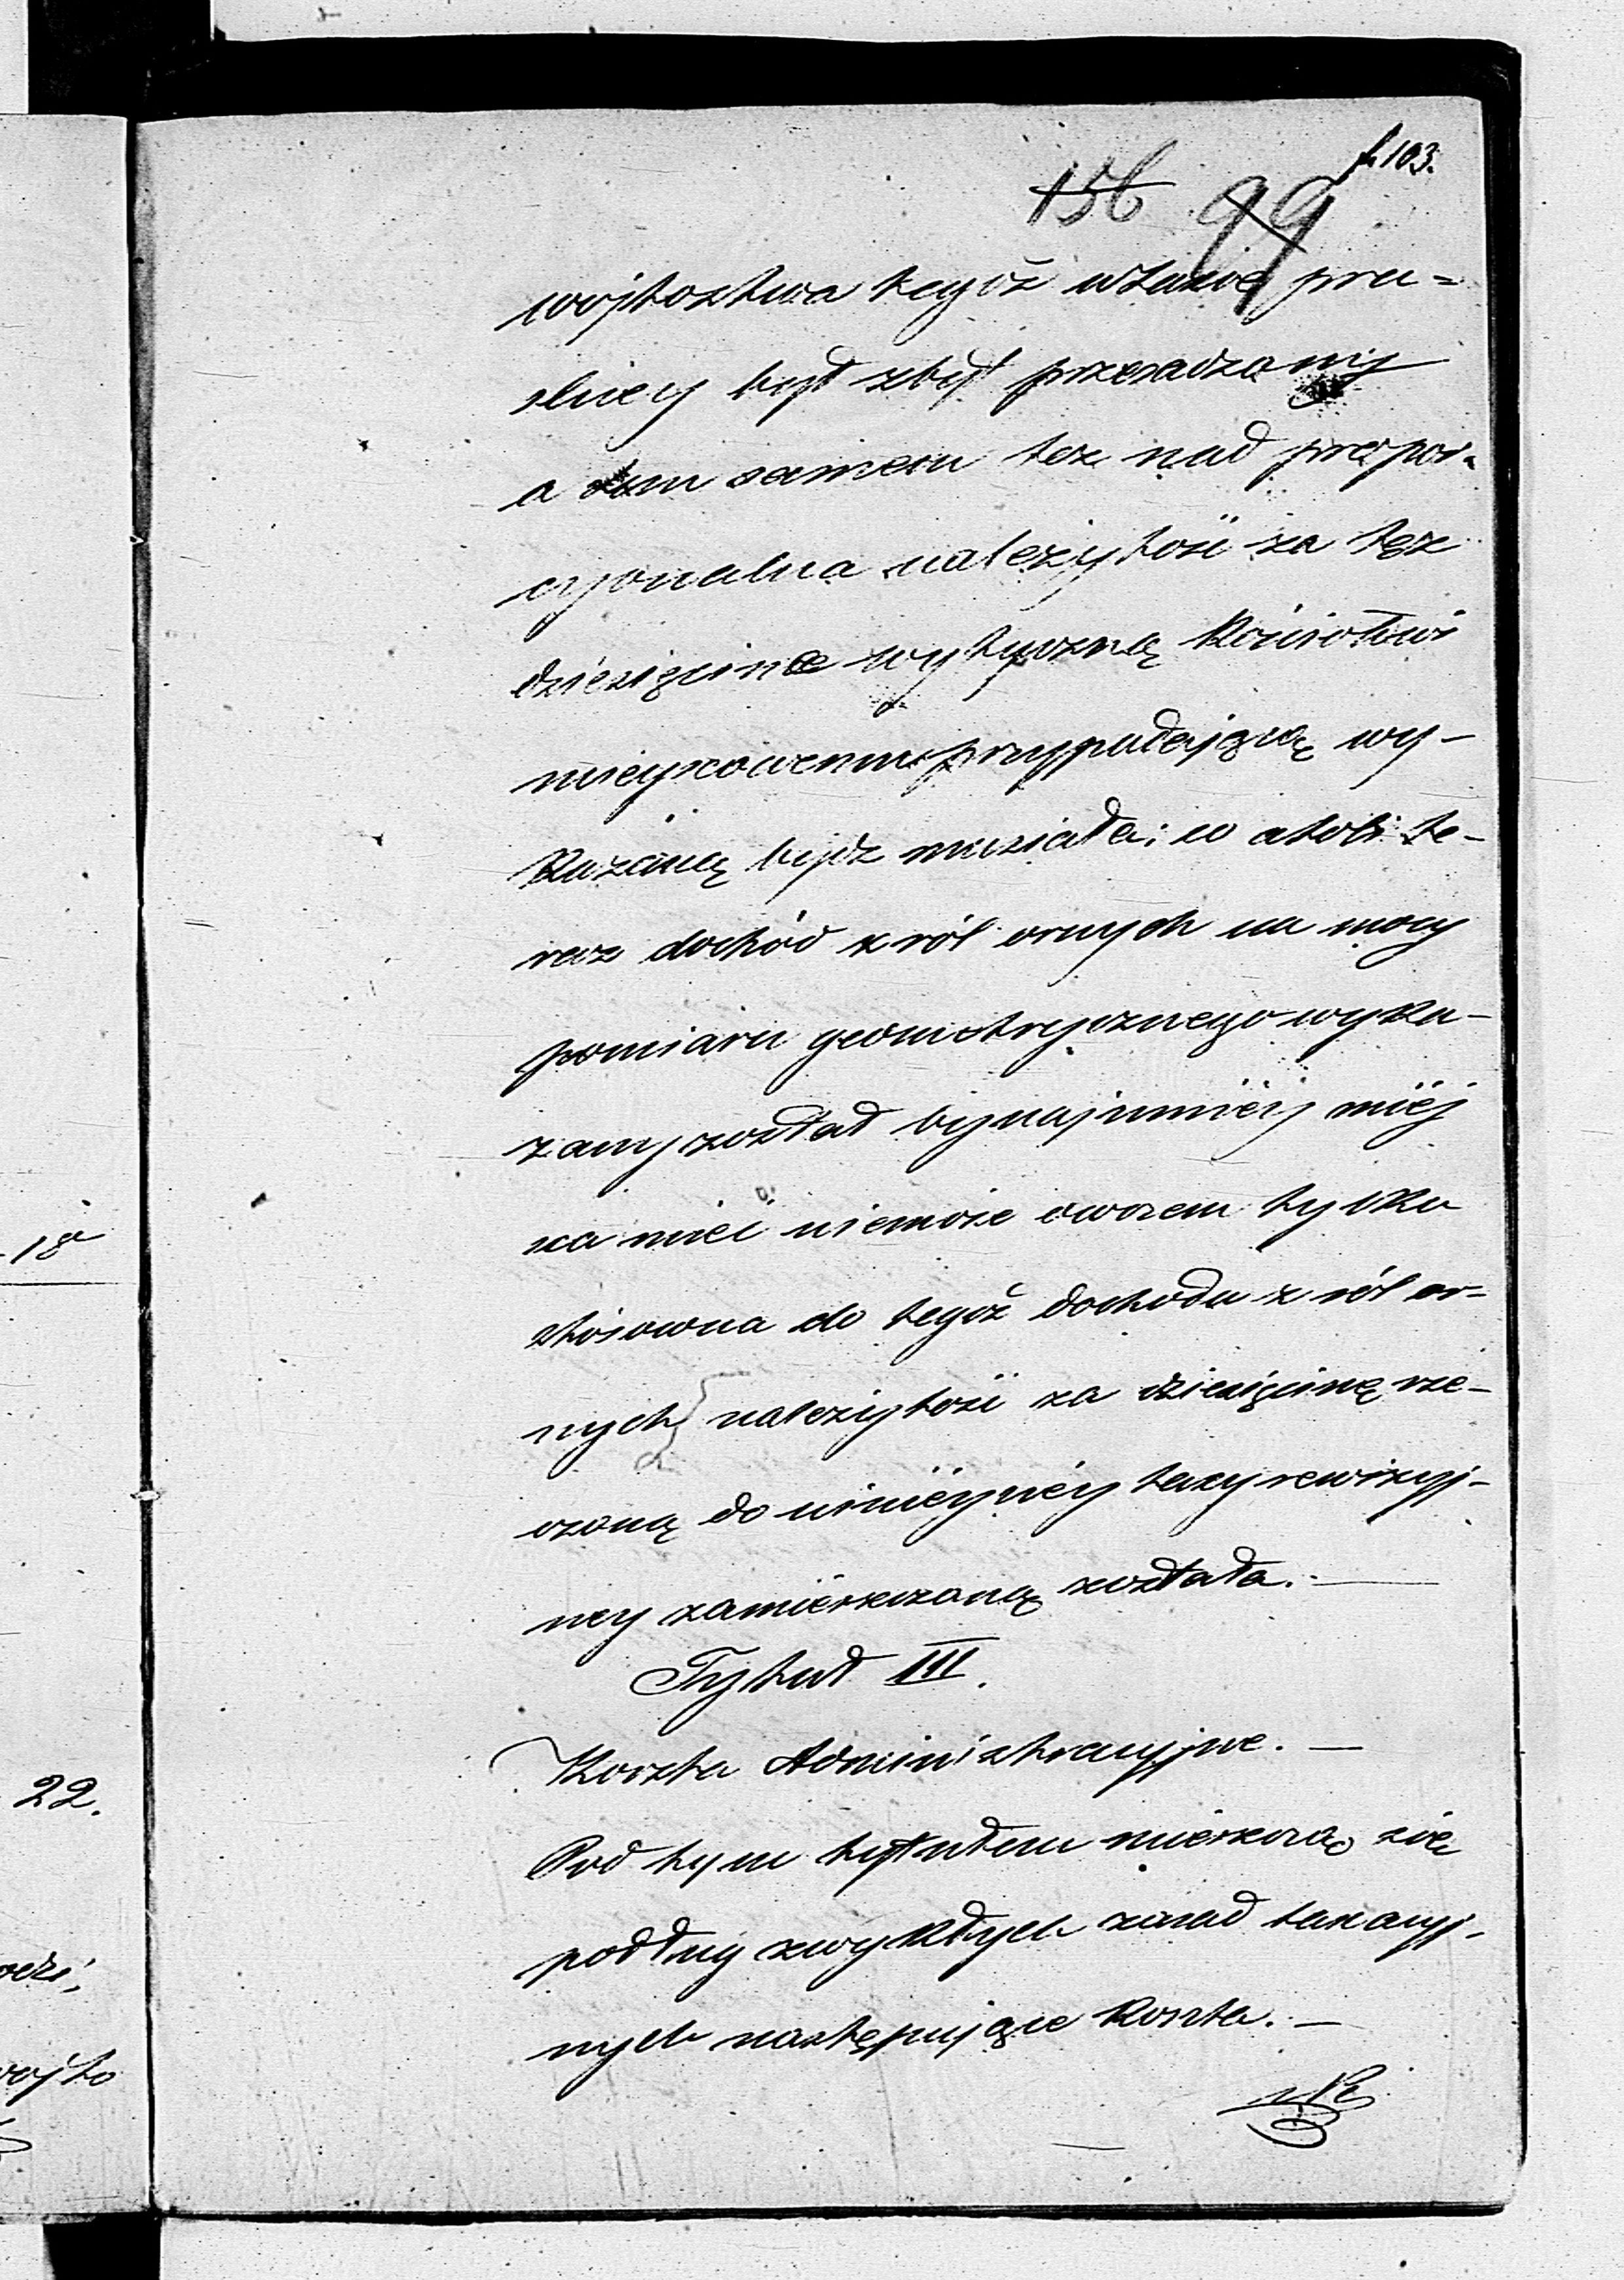 f. 103.
156 99
wójtostwa tegóż w taxie pru=
skiey był zbyt przesadzony
a tem samem też nad propor-
cyonalna należytość za tęż
dziesięcinę wytyczną Kościołowi
mieyscowemu przypadającą wy-
kazaną bydź musiała; co atoli te-
raz dochód z ról ornych na mocy
pomiaru geometrycznego wyka-
zany został bynajmniéj miéj
sca mieć niemoże owszem tylko
stósowna do tegóż dochodu z ról or-
nych należytość za dziesięcinę rze-
czoną do ninieyszéy taxy rewizyj-
ney zamiesczoną została. —
Tytuł III.
Koszta Administracyjne. —
Pod tym tytułem miesczą się
podług zwykłych zasad taxacyj-
nych następujące koszta. —
18
22.
wójto